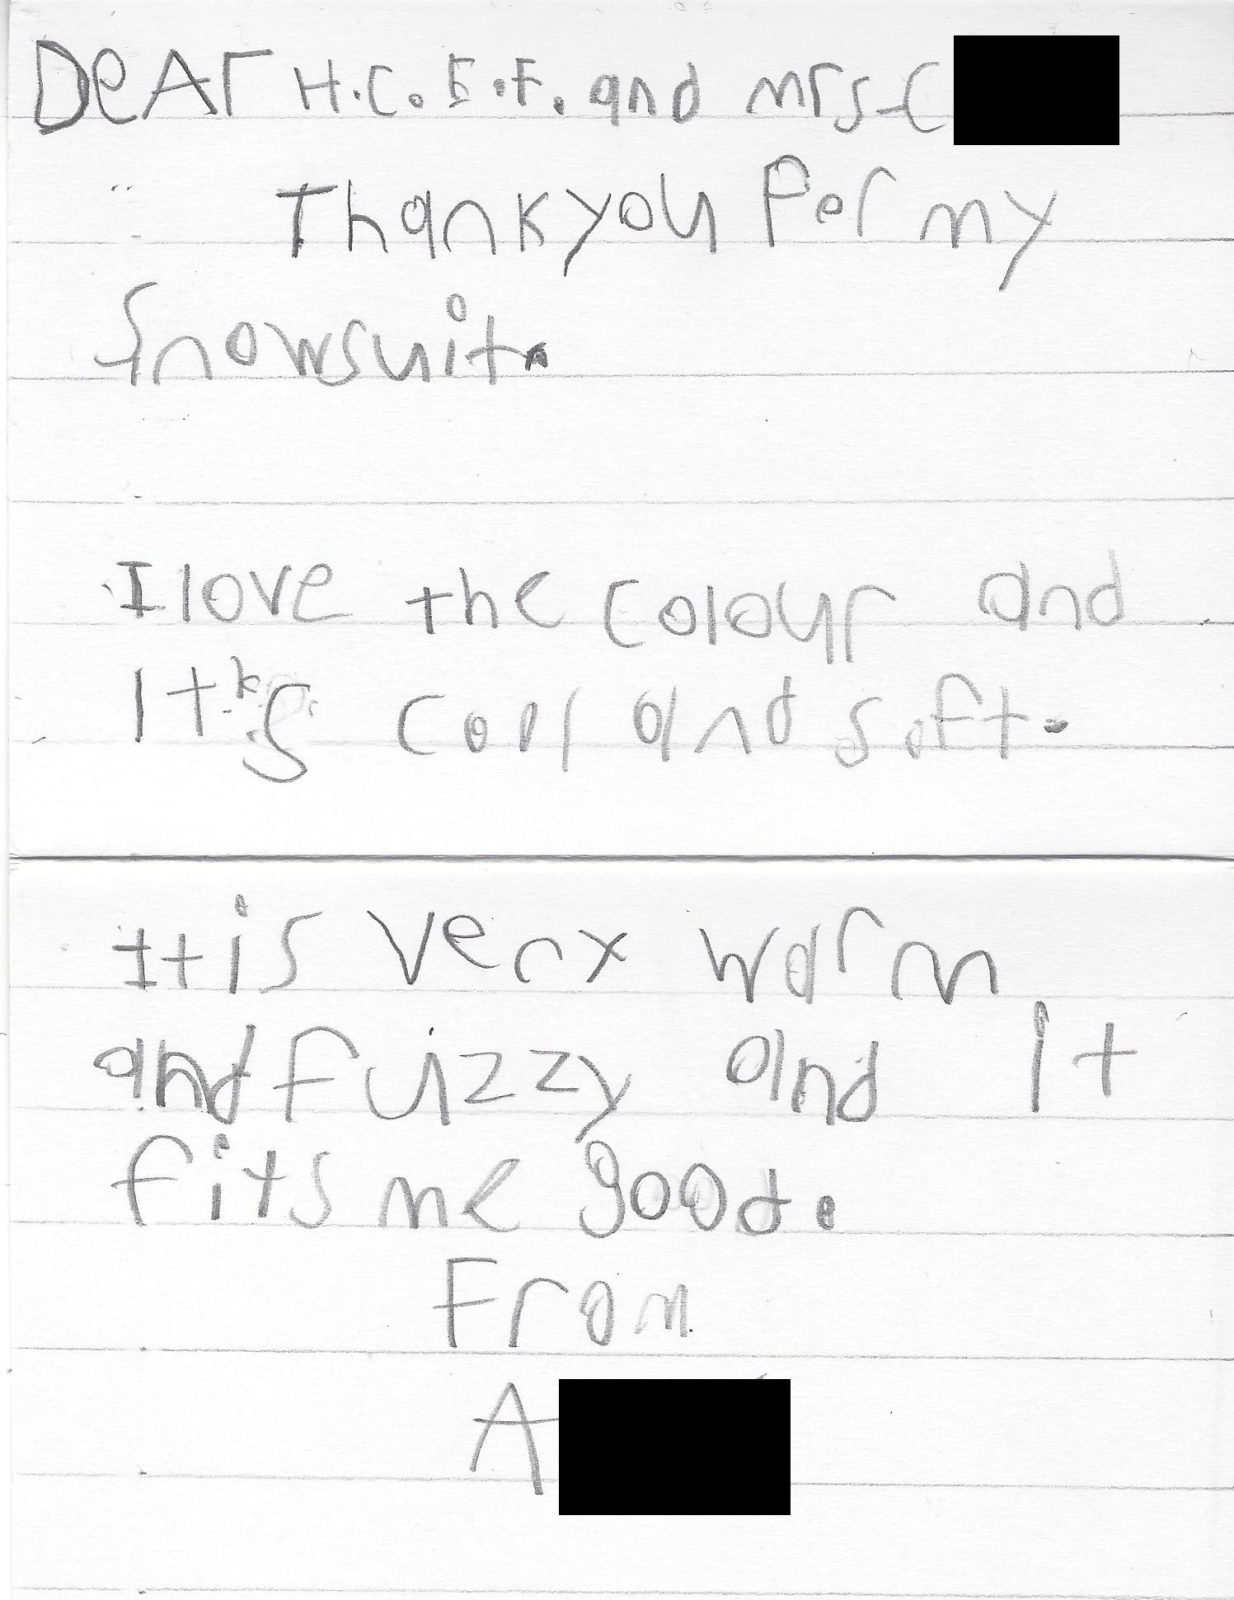 DeAr H.C.E.F. and mrs. C
Thankyou for my
Snowsuit.
I love the colour and
It's cool and soft.
It is very warm
and fuzzy and it
fits me good.
From
A